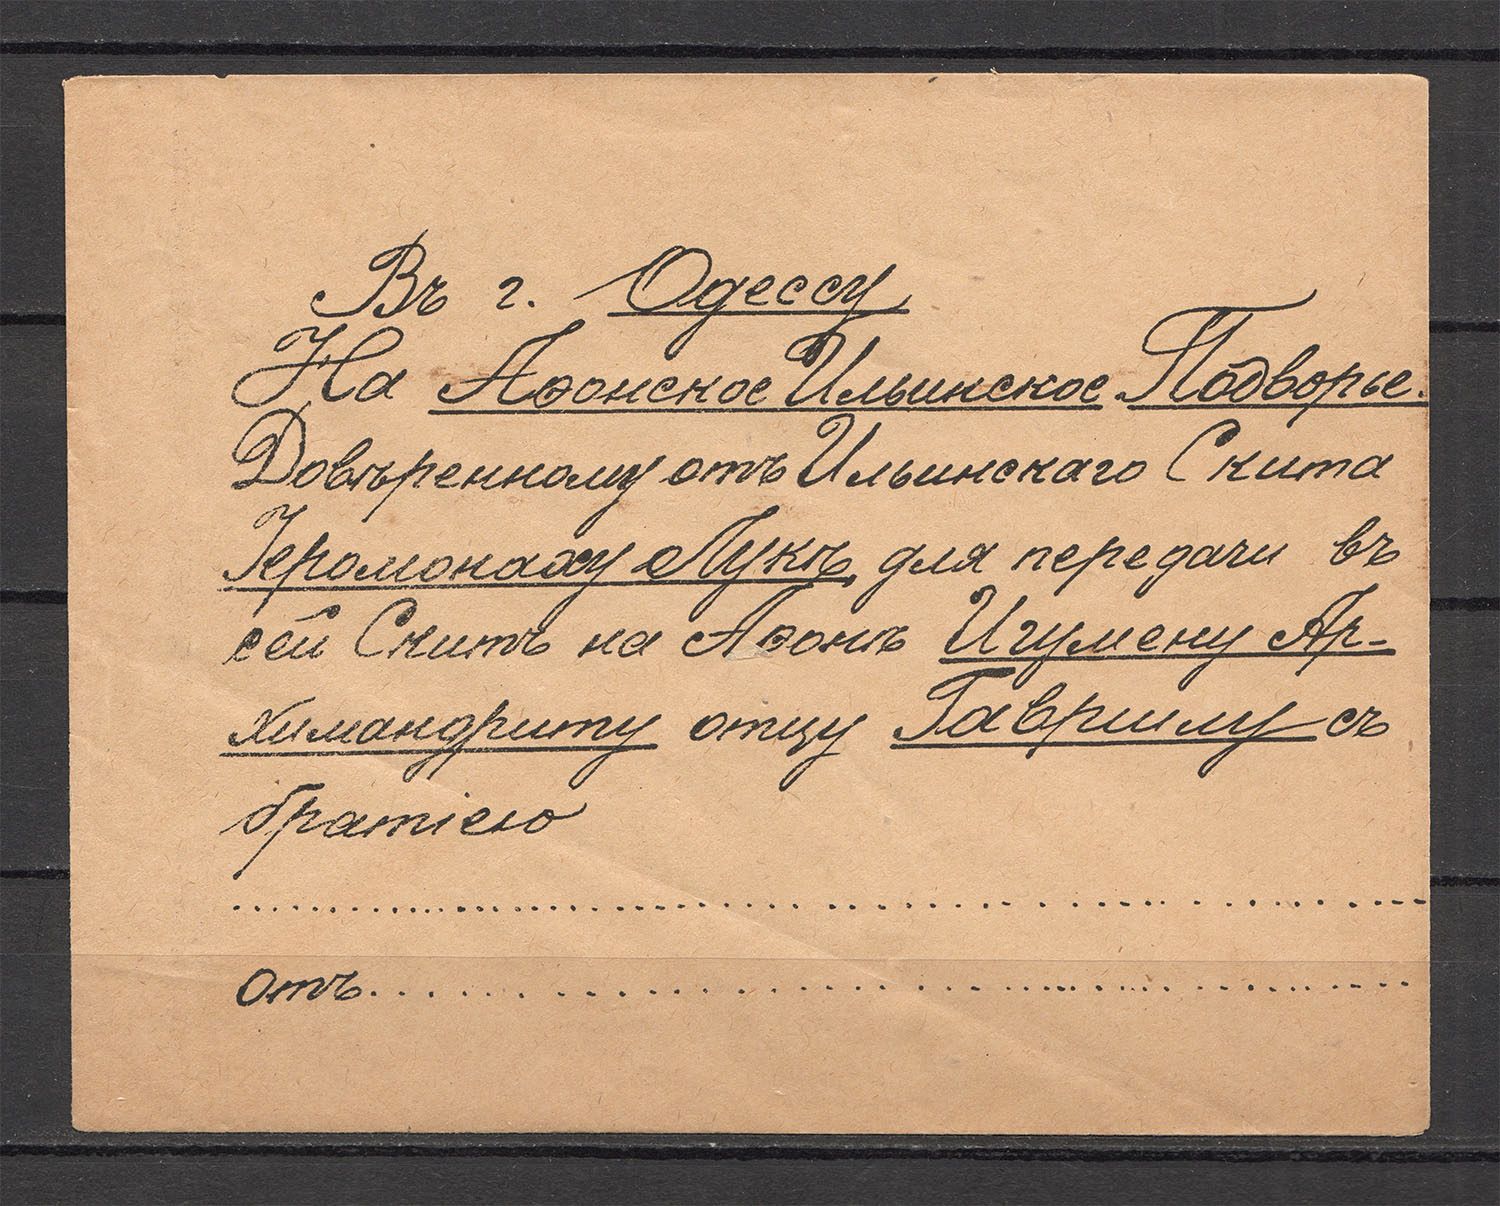 Въ г. Одессу
На Аѳонское Ильинское Подворье.
Довѣренному отъ Ильинскаго Скита
Іеромонаху Лукѣ, для передачи въ
сей Скитъ на Аѳонъ Игумену Ар-
химандриту отцу Гавриилу съ
братіею
отъ